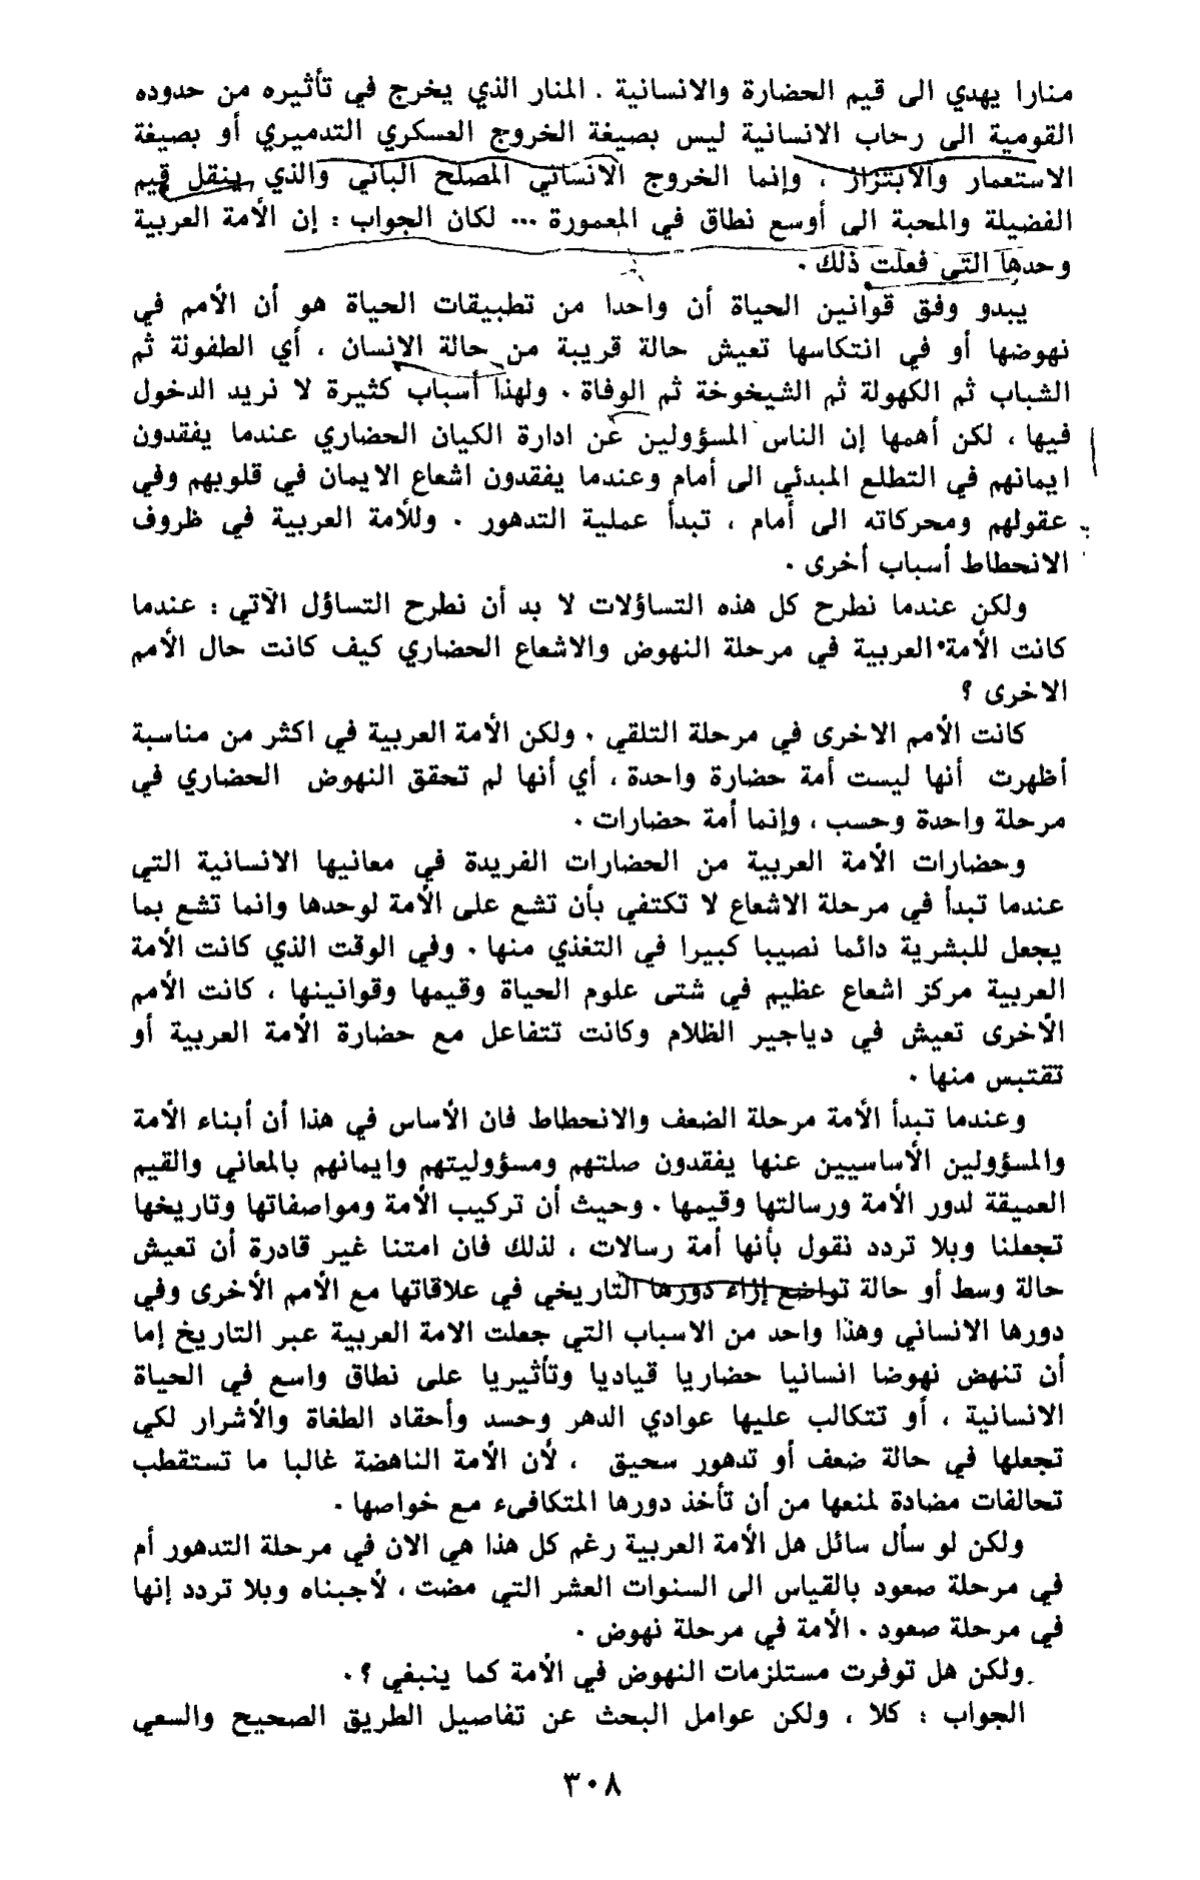 منارا يهدي الى قيم الحضارة والانسانية . المنار الذي يخرج في تأثيره من حدوده
القومية الى رحاب الانسانية ليس بصيغة الخروج العسكري التدميري أو بصيغة
الاستعمار والابتزاز ، وإنما الخروج الانساني المصلح الباني والذي ينقل قيم
الفضيلة والمحبة الى أوسع نطاق في المعمورة ... لكان الجواب : إن الأمة العربية
وحدها التي فعلت ذلك .
يبدو وفق قوانين الحياة أن واحدا من تطبيقات الحياة هو أن الأمم في
نهوضها أو في انتكاسها تعيش حالة قريبة من حالة الإنسان ، أي الطفولة ثم
الشباب ثم الكهولة ثم الشيخوخة ثم الوفاة . ولهذا أسباب كثيرة لا نريد الدخول
فيها ، لكن أهمها إن الناس المسؤولين عن ادارة الكيان الحضاري عندما يفقدون
ايمانهم في التطلع المبدئي الى أمام وعندما يفقدون اشعاع الايمان في قلوبهم وفي
عقولهم ومحركاته الى أمام ، تبدأ عملية التدهور . وللأمة العربية في ظروف
الانحطاط أسباب أخرى .
ولكن عندما نطرح كل هذه التساؤلات لا بد أن نطرح التساؤل الآتي : عندما
كانت الأمة العربية في مرحلة النهوض والاشعاع الحضاري كيف كانت حال الأمم
الاخرى ؟
كانت الأمم الاخرى في مرحلة التلقي . ولكن الأمة العربية في اكثر من مناسبة
أظهرت أنها ليست أمة حضارة واحدة ، أي أنها لم تحقق النهوض الحضاري في
مرحلة واحدة وحسب ، وإنما أمة حضارات .
وحضارات الأمة العربية من الحضارات الفريدة في معانيها الانسانية التي
عندما تبدأ في مرحلة الاشعاع لا تكتفي بأن تشع على الأمة لوحدها وانما تشع بما
يجعل للبشرية دائما نصيبا كبيرا في التغذي منها . وفي الوقت الذي كانت الأمة
العربية مركز اشعاع عظيم في شتى علوم الحياة وقيمها وقوانينها ، كانت الأمم
الأخرى تعيش في دياجير الظلام وكانت تتفاعل مع حضارة الأمة العربية أو
تقتبس منها .
وعندما تبدأ الأمة مرحلة الضعف والانحطاط فان الأساس في هذا أن أبناء الأمة
والمسؤولين الأساسيين عنها يفقدون صلتهم ومسؤوليتهم وايمانهم بالمعاني والقيم
العميقة لدور الأمة ورسالتها وقيمها . وحيث أن تركيب الأمة ومواصفاتها وتاريخها
تجعلنا وبلا تردد نقول بأنها أمة رسالات ، لذلك فان امتنا غير قادرة أن تعيش
حالة وسط أو حالة تواضع إزاء دورها التاريخي في علاقاتها مع الأمم الأخرى وفي
دورها الانساني وهذا واحد من الاسباب التي جعلت الامة العربية عبر التاريخ إما
أن تنهض نهوضا انسانيا حضاريا قياديا وتأثيريا على نطاق واسع في الحياة
الانسانية ، أو تتكالب عليها عوادي الدهر وحسد وأحقاد الطغاة والأشرار لكي
تجعلها في حالة ضعف أو تدهور سحيق ، لأن الأمة الناهضة غالبا ما تستقطب
تحالفات مضادة لمنعها من أن تأخذ دورها المتكافىء مع خواصها .
ولكن لو سأل سائل هل الأمة العربية رغم كل هذا هي الان في مرحلة التدهور أم
في مرحلة صعود بالقياس الى السنوات العشر التي مضت ، لأجبناه وبلا تردد إنها
في مرحلة صعود . الأمة في مرحلة نهوض .
ولكن هل توفرت مستلزمات النهوض في الأمة كما ينبغي ؟ .
الجواب : كلا ، ولكن عوامل البحث عن تفاصيل الطريق الصحيح والسعي
٣٠٨